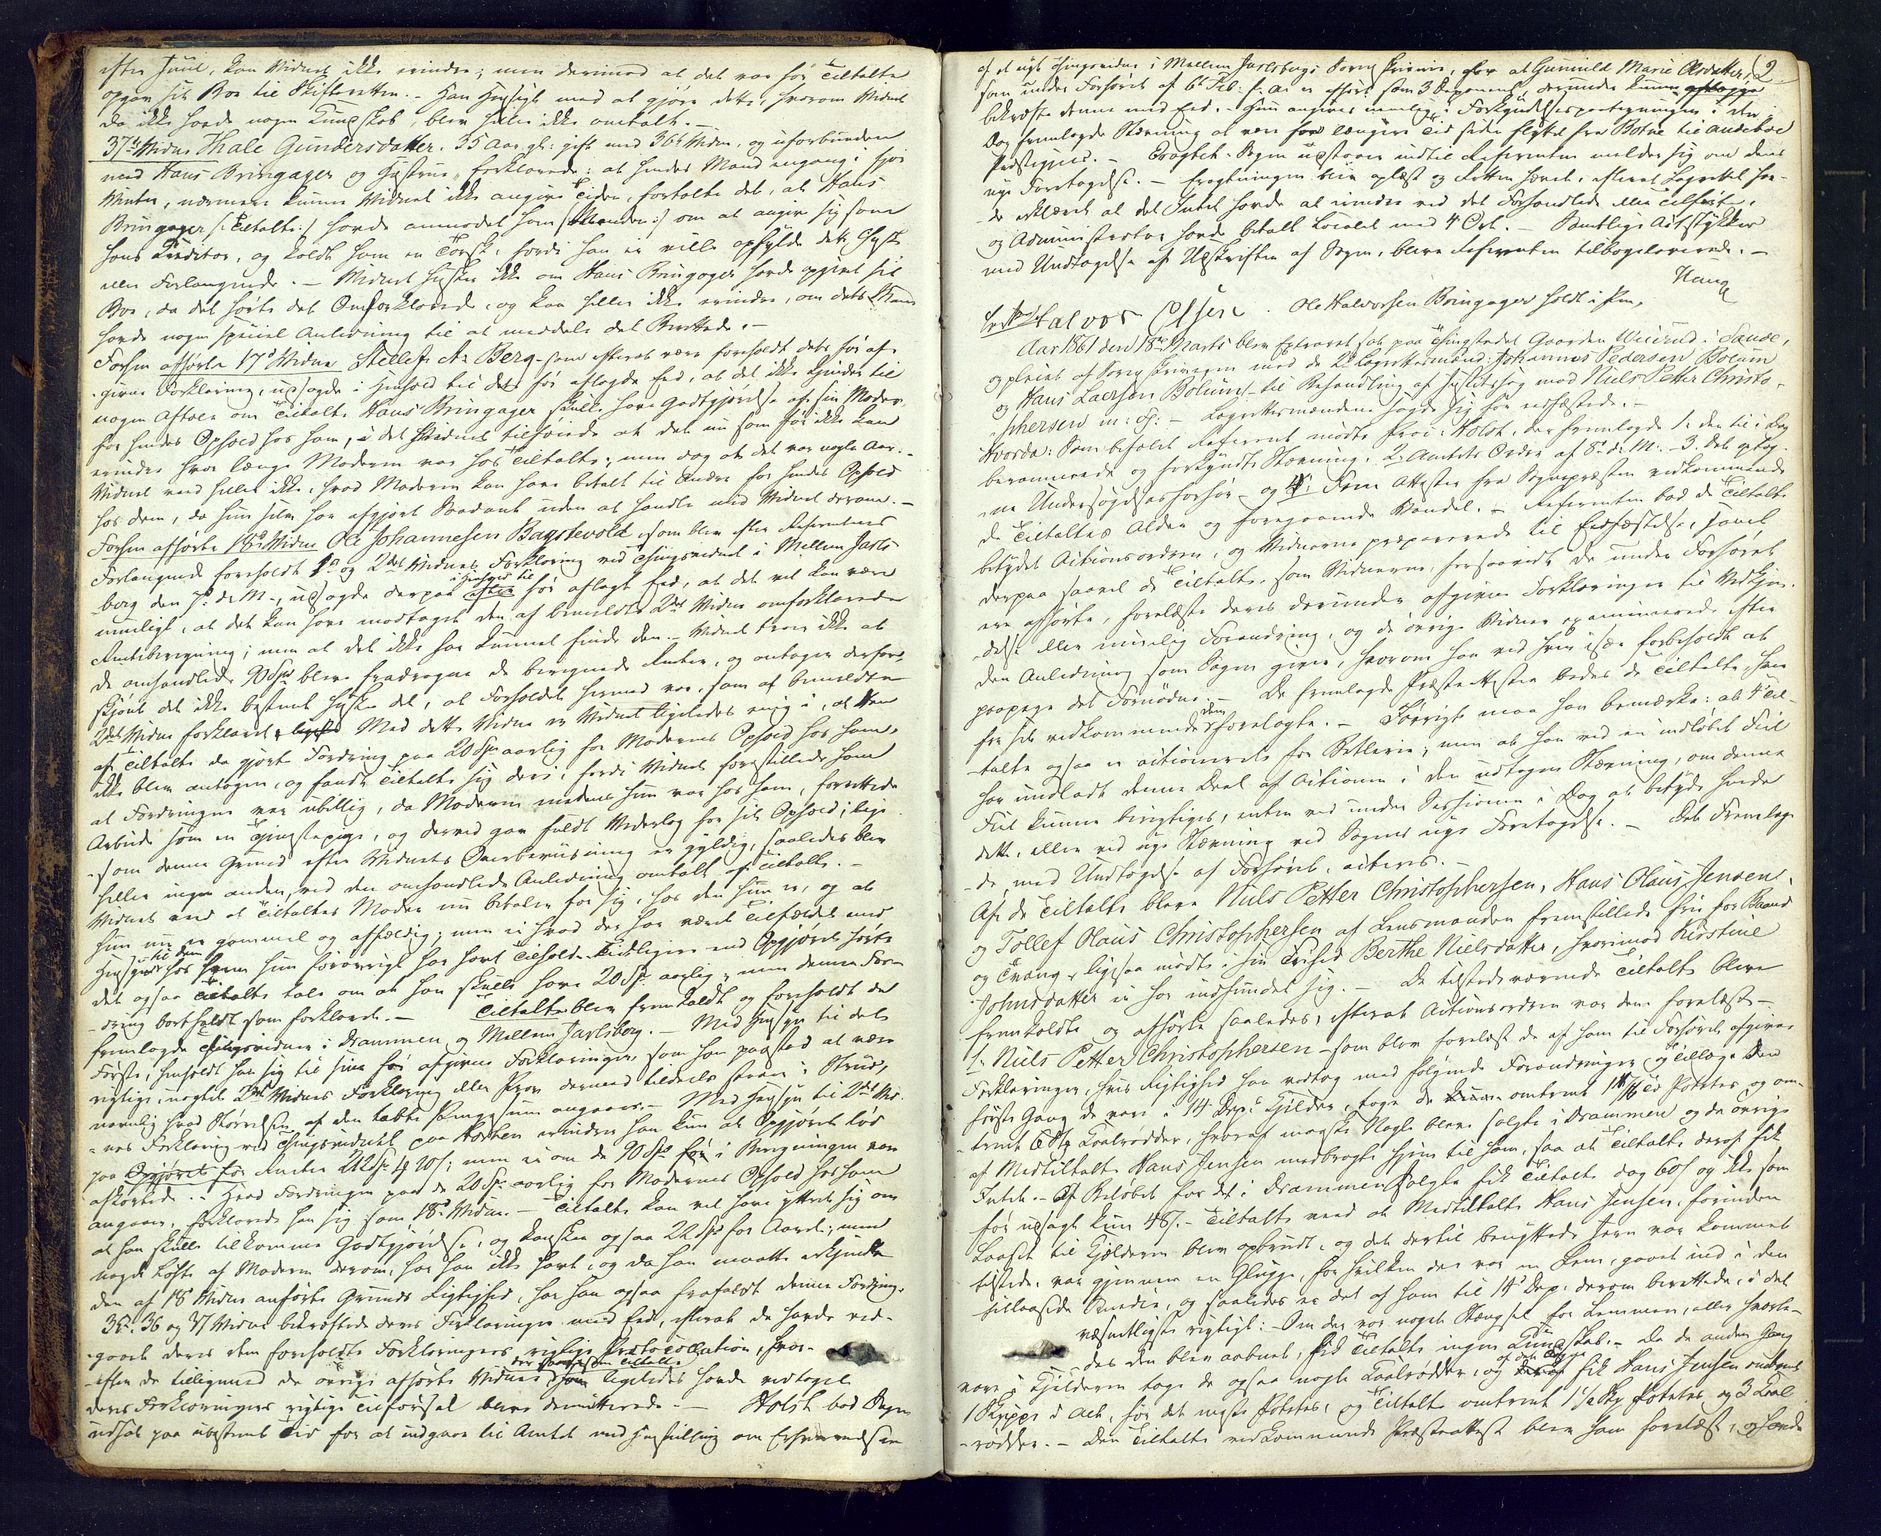 efter Juul, kan Vidnet ikke erindre; men dermed at det var før Tiltalte
opgav sit Bo til Skifteretten. — Han Hensigt med at gjøre dette, hvorom Vidnet
da ikke havde nogen Kundskab, blev heller ikke omtalt. —
37te Vidne Thale Gundersdatter. 35 Aar gl: gift med 36te Vidne, og uforbunden
med Hans Bringager og Hustrue, forklarede: at hendes Mand engang i fjor
Vinter, nærmere kunne Vidnet ikke angive Tiden, fortalte det, at Hans
Bringager /: Tiltalte :/ havde anmodet ham /: Manden :/ om at angive sig som
hans Kreditor, og kaldt ham en Torsk, fordi han ei ville opfylde dette Hans
Forlangende. — Vidnet husker ikke om Hans Bringager havde opgivet sit
Bo, da det hørte det Omforklarede, og kan heller ikke erindre, om dets Mand
havde nogen speciel Anledning til at meddele det Berettede. —
Forhen afhørte 17de Vidne Stellef A: Berg — som efterat være foreholdt dets før af-
givne Forklaring, udsagde i Henhold til den før aflagde Eed, at det ikke kjender til
nogen Aftale om Tiltalte Hans Bringager skulle have Godtgjørelse af sin Moder
for hendes Ophold hos ham, i det Vidnet tilføiede at det nu som før ikke kan
erindre hvor længe Moderen var hos Tiltalte; men dog at det var nogle Aar. —
Vidnet veed heller ikke, hvad Moderen kan have betalt til Andre for hendes Ophold
hos dem, da hun selv har afgjort Saadant uden at handle med Vidnet derom. —
Forhen afhørte 18de Vidne Ole Johannesen Baggetvold, som blev efter Referentens
Forlangende foreholdt 1ste og 2det Vidnes Forklaring ved Thingsvidnet i Mellem Jarls-
berg den 7de d: M., udsagde derpaa i Henhold til før aflagt Eed, at det vel kan være
mueligt, at det kan have modtaget den af bemeldte 2det Vidne omforklarede
Rentesberegning; men at det ikke har kunnet finde den. — Vidnet troer ikke at
de omhandlede 90 Spd blev fradragne de beregnede Renter, og antager derfor,
skjønt det ikke bestemt husker det, at Forholdet hermed var, som af bemeldte
2det Vidne forklaret. Med dette Vidne er Vidnet ligeledes enig i, at den
af Tiltalte da gjorte Fordring paa 20 Spd aarlig for Moderens Ophold hos ham,
ikke blev antagen, og fandt Tiltalte sig deri, fordi Vidnet forestillede ham
at Fordringen var ubillig, da Moderen medens hun var hos ham, forrettede
Arbeide som en Tjenestepige, og derved gav fuldt Vederlag for sit Ophold; lige-
som denne Grund efter Vidnets Overbeviisning er gyldig, saaledes blev
heller ingen anden, ved den omhandlede Anledning omtalt af Tiltalte. —
Vidnet veed at Tiltaltes Moder nu betaler for sig, hos den hun er, og at
hun nu er gammel og affældig; men ei hvad der har været Tilfældet med
Hensyn til dem hos hvem hun forøvrigt har havt Tilhold. Tidligere end Opgjøret hørte
det ogsaa Tiltalte tale om at han skulle have 20 Spd aarlig, men denne For-
dring bortfaldt som forklaret. — Tiltalte blev fremkaldt og foreholdt de
fremlagde Thingsvidner i Drammen og Mellem Jarlsberg. — Med Hensyn til det
Første, henholdt han sig til sine før afgivne Forklaringer som han paastod at være
rigtige, uagtet 2det Vidnes Forklaring eller Prov dermed tildeels staaer i Strid,
navnlig hvad Størrelsen af den tabte Pengesum angaaer. — Med Hensyn til 2det Vid-
nes Forklaring ved Thingsvidnet paa Horten erindrer han kun at Opgjøret lød
paa Renter 212 Spd 4 # 20 s; men ei om de 90 Spd før i Beregningen var
afkortede. — Hvad Fordringen paa de 20 Spd aarlig for Moderens Ophold hos ham
angaaer, forklarede han sig som 18de Vidne. — Tiltalte kan vel have yttret sig om
at han skulle tilkomme Godtgjørelse, og kanskee ogsaa 22 Spd for Aaret; men
noget Løfte af Moderen derom, har han ikke havt, og da han maatte erkjende
den af 18 Vidne anførte Grunds Rigtighed, har han ogsaa frafaldt denne Fordring.
35te, 36 og 37 Vidne bekræftede deres Forklaringer med Eed, efterat de havde ved-
gaaet deres dem foreholdte Forklaringers rigtige Protocollation, hvor-
efter de tilligemed de øvrige afhørte Vidner der ligesom Tiltalte ligeledes havde vedtaget
deres Forklaringers rigtige Tilførsel bleve demitterede. — Holst bad Sagen
udsat paa ubestemt Tid for at indgaae til Amtet med Henstilling om Erhvervelsen
2.
af et nyt Thingsvidne i Mellem Jarlsbergs Sorenskriverie, for at Gunnild Marie Olsdatter,
som under Forhøret af 6te Feb: f: A: er afhørt som 3 Deponent, derunder kunne aflægge
bekræfte denne med Eed. Hun angives nemlig i Forkyndelsespaategningen i den
Dag fremlagde Stævning at være for længere Tid siden flyttet fra Botne til Andeboe
Præstegjeld. — Eragtet. Sagen udstaaer indtil Referenten melder sig om dens
nye Foretagelse. — Eragtningen blev oplæst og Retten hævet, efterat Lagrettet hav-
de erklæret at det Intet havde at erindre ved det Forhandlede eller Tilførte,
og Administrator havde betalt Localet med 4 Ort. — Samtlige Actstykker
med Undtagelse af Udskriften af Sagen, bleve Referenten tilbageleverede. —
Hang
Halvor Olsen. Ole Halvorsen Bringager holdt i Pen,
Aar 1861 den 18de Marts blev Extraret sat paa Thingstedet Gaarden Weierud i Sande,
og pleiet af Sorenskriveren med de 2 Lagrettesmænd: Johannes Pedersen Bolum
og Hans Larsen Bolum — til Behandling af Justitssag mod Niels Petter Christo-
phersen m: fl: — Lagrettesmændene sagde sig før eedfæstede. —
Hvorda: Som befalet Referent mødte Proc: Holst, der fremlagde 1. den til i Dag
berammede og forkyndte Stævning. 2. Amtets Ordre af 8de d: M. — 3. det optag-
ne Undersøgelsesforhør — og 4. Fem Attester fra Sognepræsten vedkommende
de Tiltaltes Alder og foregaaende Vandel. — Referenten bad de Tiltalte
betydet Actionsordren, og Vidnerne præparerede til Eedfæstelse, samt
derpaa saavel de Tiltalte, som Vidnerne, forsaavidt de under Forhøret
ere afhørte, forelæste deres derunder afgivne Forklaringer til Vedkjen-
delse eller mulig Forandring, og de øvrige Vidner examinerede efter
den Anledning som Sagen giver, hvorom han ved hver især forbeholdt at
propge det Fornødne. — De fremlagde Præsteattester bedes de Tiltalte, hver
for sit vedkommende den forelagte. — Forøvrigt maa han bemærke: at 4de Til-
talte ogsaa er actioneret for Betlerie; men at han ved en indløbet Feil
har undladt denne Deel af Actionen i den udtagne Stævning, om denne
Feil kunne berigtiges, enten ved under Sessionen i Dag at betyde hende
dette, eller ved nye Stævning ved Sagens nye Foretagelse. — Det Fremlag-
de, med Undtagelse af Forhøret, acteres. —
Af de Tiltalte bleve Niels Petter Christophersen, Hans Olaus Jensen,
og Tollef Olaus Christophersen af Lensmanden fremstillede frie for Baand
og Tvang, ligesaa mødte i sin Frihed Berthe Nielsdatter, hvorimod Kirstine
Johnsdatter ei har indfundet sig. — De tilstedeværende Tiltalte bleve
fremkaldte og afhørte saaledes, efterat Actionsordren var dem forelæst. —
1. Niels Petter Christophersen — som blev forelæst de af ham til Forhøret afgivne
Forklaringer, hvis Rigtighed han vedtog med følgende Forandringer og Tillæg: Den
første Gang de vare i 14 Dep: Kjelder, toge de omtrent 1 1/16 Td Potetes og om-
trent 6 Stk Kaalrødder, hvoraf maaskee Nogle bleve solgte i Drammen og de øvrige
af Medtiltalte Hans Jensen medbragte hjem til ham, saa at Tiltalte deraf fik
Intet. — Af Beløbet for det i Drammen solgte fik Tiltalte dog 60 s og ikke som
før udsagt kun 48 s. — Tiltalte veed at Medtiltalte Hans Jensen, forinden
Laaset til Kjelderen blev opbrudt, og det dertil benyttede Jern var kommet
tilstede, var gjennem en Glugge, for hvilken der var en Lem, gaaet ind i den
tillaasede Kjelder, og saaledes er det af ham til 14de Dep: derom berettede, i det
væsentligste rigtigt. — Om der var noget Hængsel for Lemmen, eller hvorle-
des den blev aabnet, fik Tiltalte ingen Kundskab. — Da de anden Gang
vare i Kjelderen toge de ogsaa nogle Kaalrødder, og af det Tagne fik Hans Jensen omtrent
1 Skjeppe i Act, for det meste Potetes, og Tiltalte omtrent 1 Skp Potetes, og 3 Kaal-
rødder. — Den Tiltalte vedkommende Præsteattest blev ham forelæst, og havde